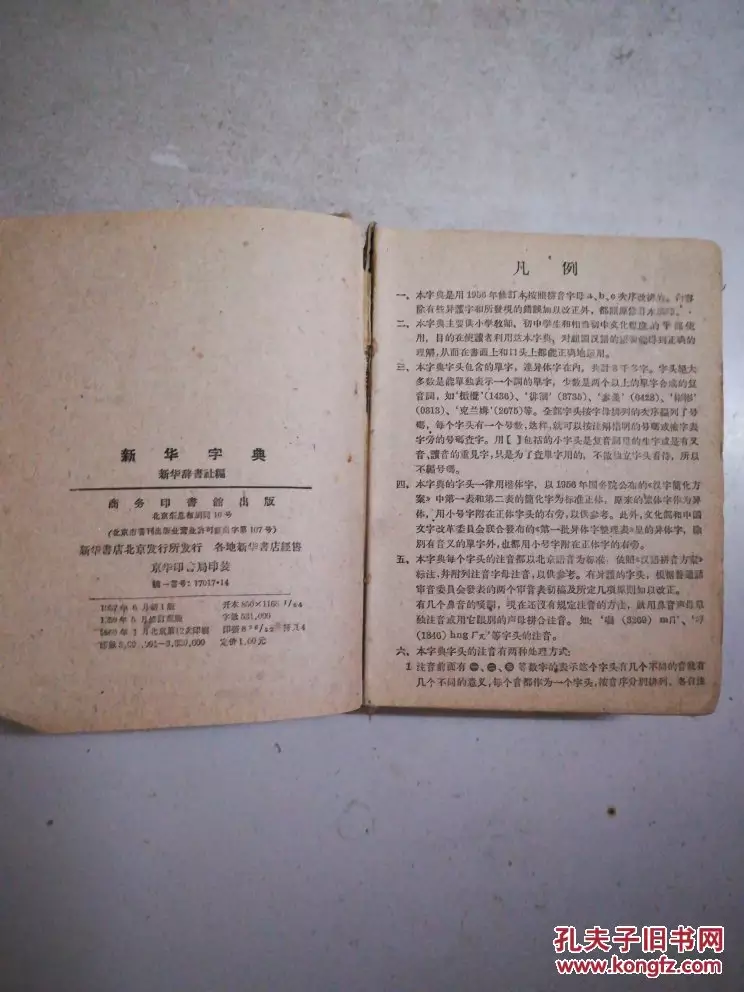 新华字典
新华辞書社編
商务印書館出版
北京东总布胡同10号
(北京市書刊出版业营业許可証出字第107号)
新华書店北京发行所发行 各地新华書店經售
京华印書局印装
統一書号:17017·14
1957年6月新1版
开本850×1168 1/64
字数531,000
定价1.00元
凡例
一、本字典是用1956年修訂本按照拼音字母a、b、c次序改排的。内容
除有些异讀字和所發現的錯誤加以改正外,都
二、本字典主要供小学教师、初中学生和相当初中文化程度的
用,目的在使讀者利用这本字典,对祖国汉語的語
得到正确的
理解,从而在書面上和口头上都能正确地运用。
三、本字典字头包含的單字,連异体字在內,共計8千多字。字头絕大
多数是能單独表示一个詞的單字,少数是两个以上的單字合成的复
音詞,如
(1436)、‘徘徊’(3735)、
(0428)、
(0313)、‘克兰姆’(2675)等。全部字头按字母排列的次序編列了号
碼,每个字头有一个号数,这样,就可以按注明
的号碼或檢字表
字旁的号碼查字。用【 】包括的小字头是复音詞里的生字或是有又
音、讀音的重見字,只是为了查單字用的,不做独立字头看待,所以
不編号碼。
四、本字典的字头一律用楷体字,以1956年国务院公布的《汉字簡化方
案》中第一表和第二表的簡化字为标准正体,原来的繁体字作为异
体,用小号字附在正体字头的右旁,以供参考。此外,文化部和中国
文字改革委員会联合發布的《第一批异体字整理表》里的异体字,除
別有音义的單字外,也都用小号字附在正体字的右旁。
五、本字典每个字头的注音都以北京語音为标准,依照《汉語拼音方案》
标注,并附列注音字母注音,以供参考。有异讀的字头,根据普通話
审音委員会發表的两个审音表初稿及所定几項原則加以改正。
有几个鼻音的嘆詞,現在还沒有規定注音的方法,就用鼻音声母單
独注音或用它跟別的声母拼合注音。如:‘
(3209) m
(1846) hng ㄏㄫ’等字头的注音。
六、本字典字头的注音有两种处理方式:
1 注音前面有㊀、㊁、㊂等数字的表示这个字头有几个不同的音或有
几个不同的意义,每个音都作为一个字头,按音序分別排列,各自注
孔夫子旧书网
www.kongfz.com